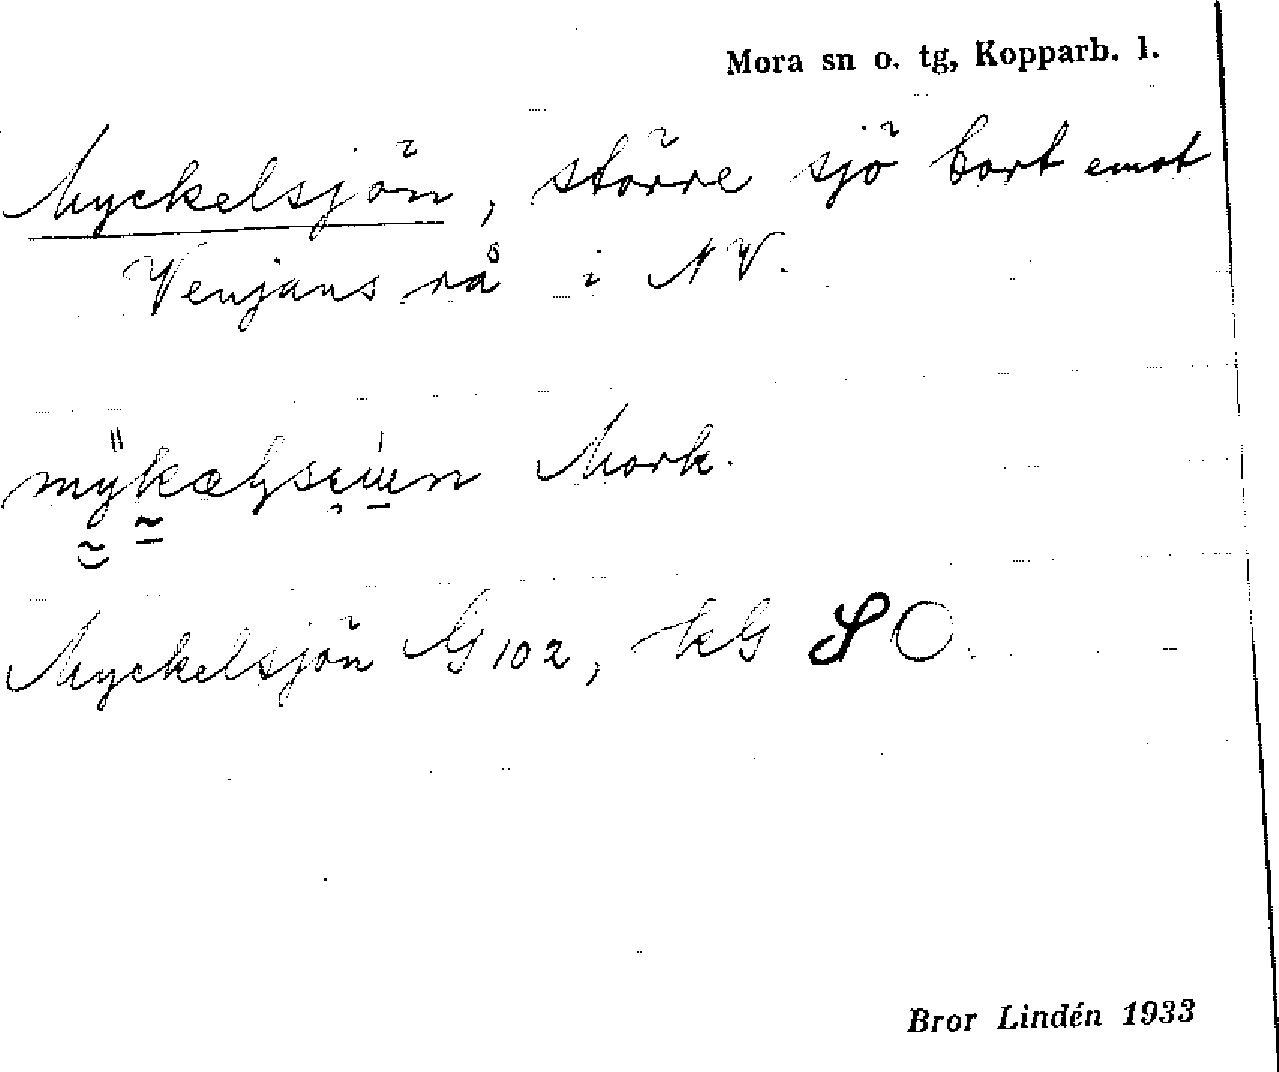 Mora sn o. tg, Kopparb. l.
Myckelsjön, större sjö bort emot
Venjans rå i NV.
Mork.
Myckelsjön G 102, kG SO.
Bror Lindén 1933